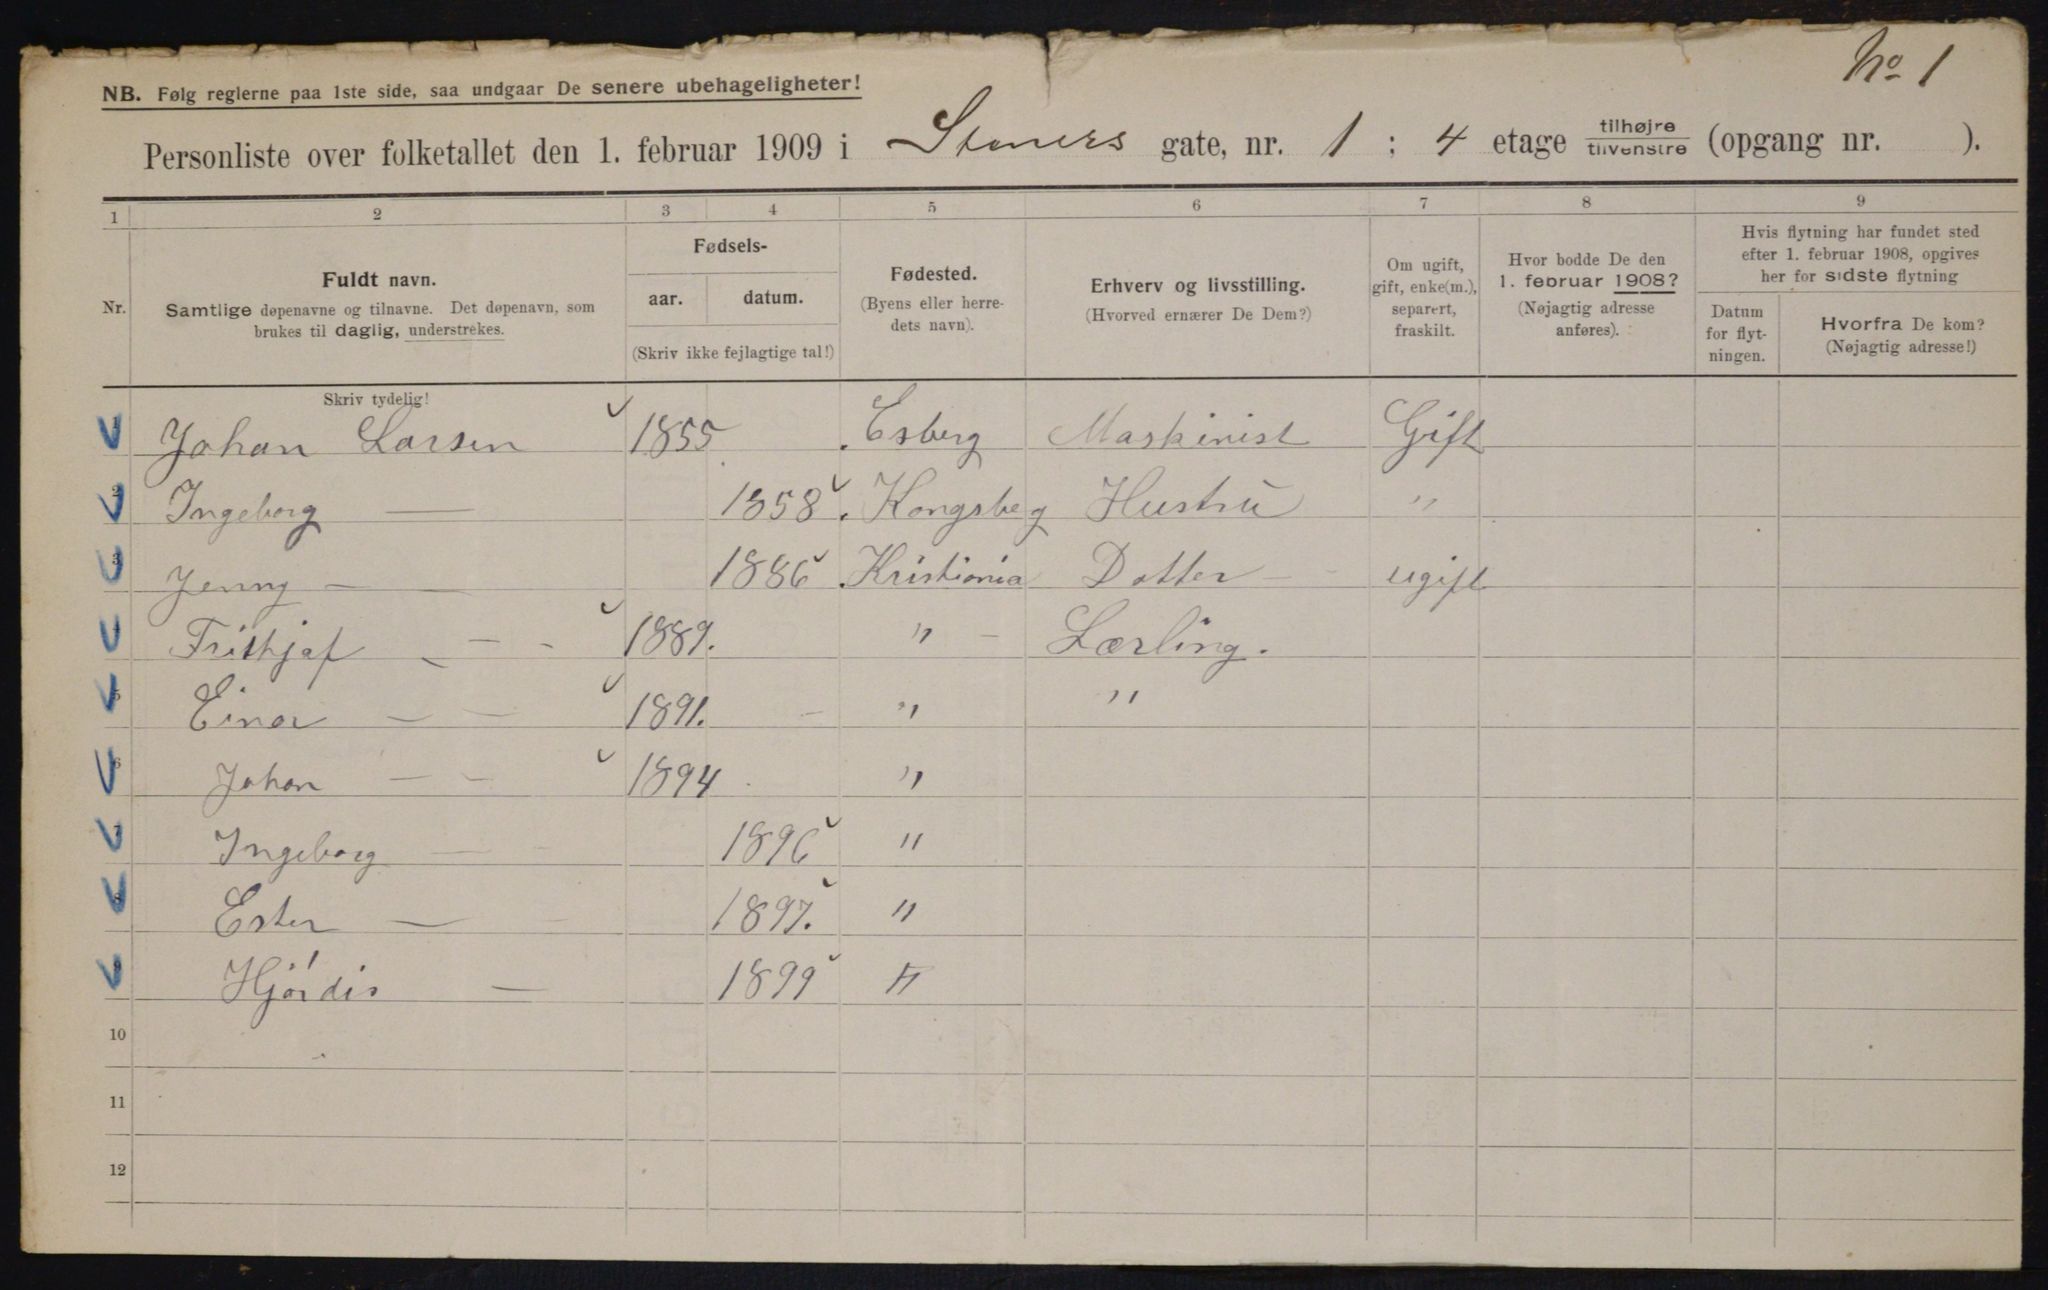 No 1
NB. Følg reglerne paa 1ste side, saa undgaar De senere ubehageligheter!
Personliste over folketallet den 1. februar 1909 i Steners gate, nr. 1 ; 4 etage tilhøjre tilvenstre (opgang nr. ).
1 2 3 4 5 6 7 8 9
Nr.
Fuldt navn.
Samtlige døpenavne og tilnavne. Det døpenavn, som
brukes til daglig, understrekes.
Fødsels-
aar. datum.
(Skriv ikke fejlagtige tal!)
Fødested.
(Byens eller herre-
dets navn).
Erhverv og livsstilling.
(Hvorved ernærer De Dem?)
Om ugift,
gift, enke(m.),
separert,
fraskilt.
Hvor bodde De den
1. februar 1908?
(Nøjagtig adresse
anføres).
Hvis flytning har fundet sted
efter 1. februar 1908, opgives
her for sidste flytning
Datum
for flyt-
ningen.
Hvorfra De kom?
(Nøjagtig adresse!)
Skriv tydelig!
1 Johan Larsen 1855 Esberg Maskinist Gift
2 Ingeborg — 1858 Kongsbeg Hustru "
3 Jenny — — 1886 Kristiania Datter - - ugift
4 Frithjof - - - 1889. " - Lærling.
5 Einar - - 1891. - " "
6 Johan - - 1894 "
7 Ingeborg - - 1896 "
8 Ester — - 1897. "
9 Hjördis — 1899 "
10
11
12